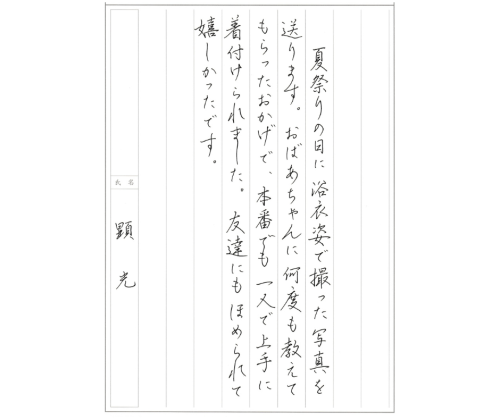 夏祭りの日に浴衣姿で撮った写真を
送ります。おばあちゃんに何度も教えて
もらったおかげで、本番でも一人で上手に
着付けられました。友達にもほめられて
嬉しかったです。
氏名
顕光